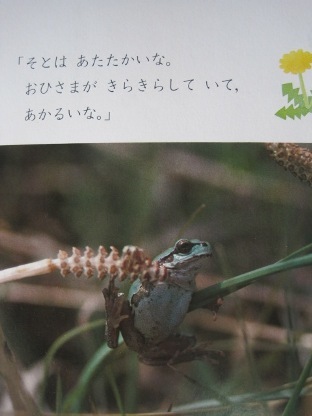 「そとは あたたかいな。
おひさまが きらきらして いて、
あかるいな。」